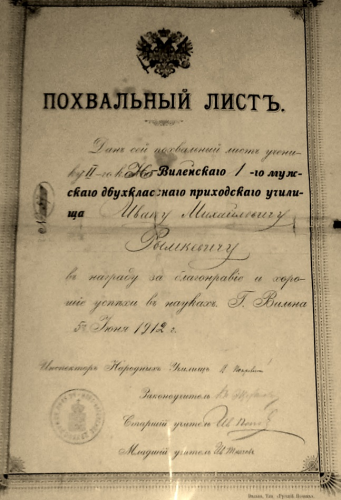 ПОХВАЛЬНЫЙ ЛИСТЪ.
Данъ сей похвальный листъ учени-
ку II-го кл. Но-Виленскаго 1-го муж-
скаго двухкласснаго приходскаго учили-
ща Ивану Михайловичу
въ награду за благонравіе и хоро-
шіе успѣхи въ наукахъ. Г. Вильна
Іюня 1912 г.
Инспекторъ Народныхъ Училищъ
Законоучитель
Старшій учитель
Младшій учитель